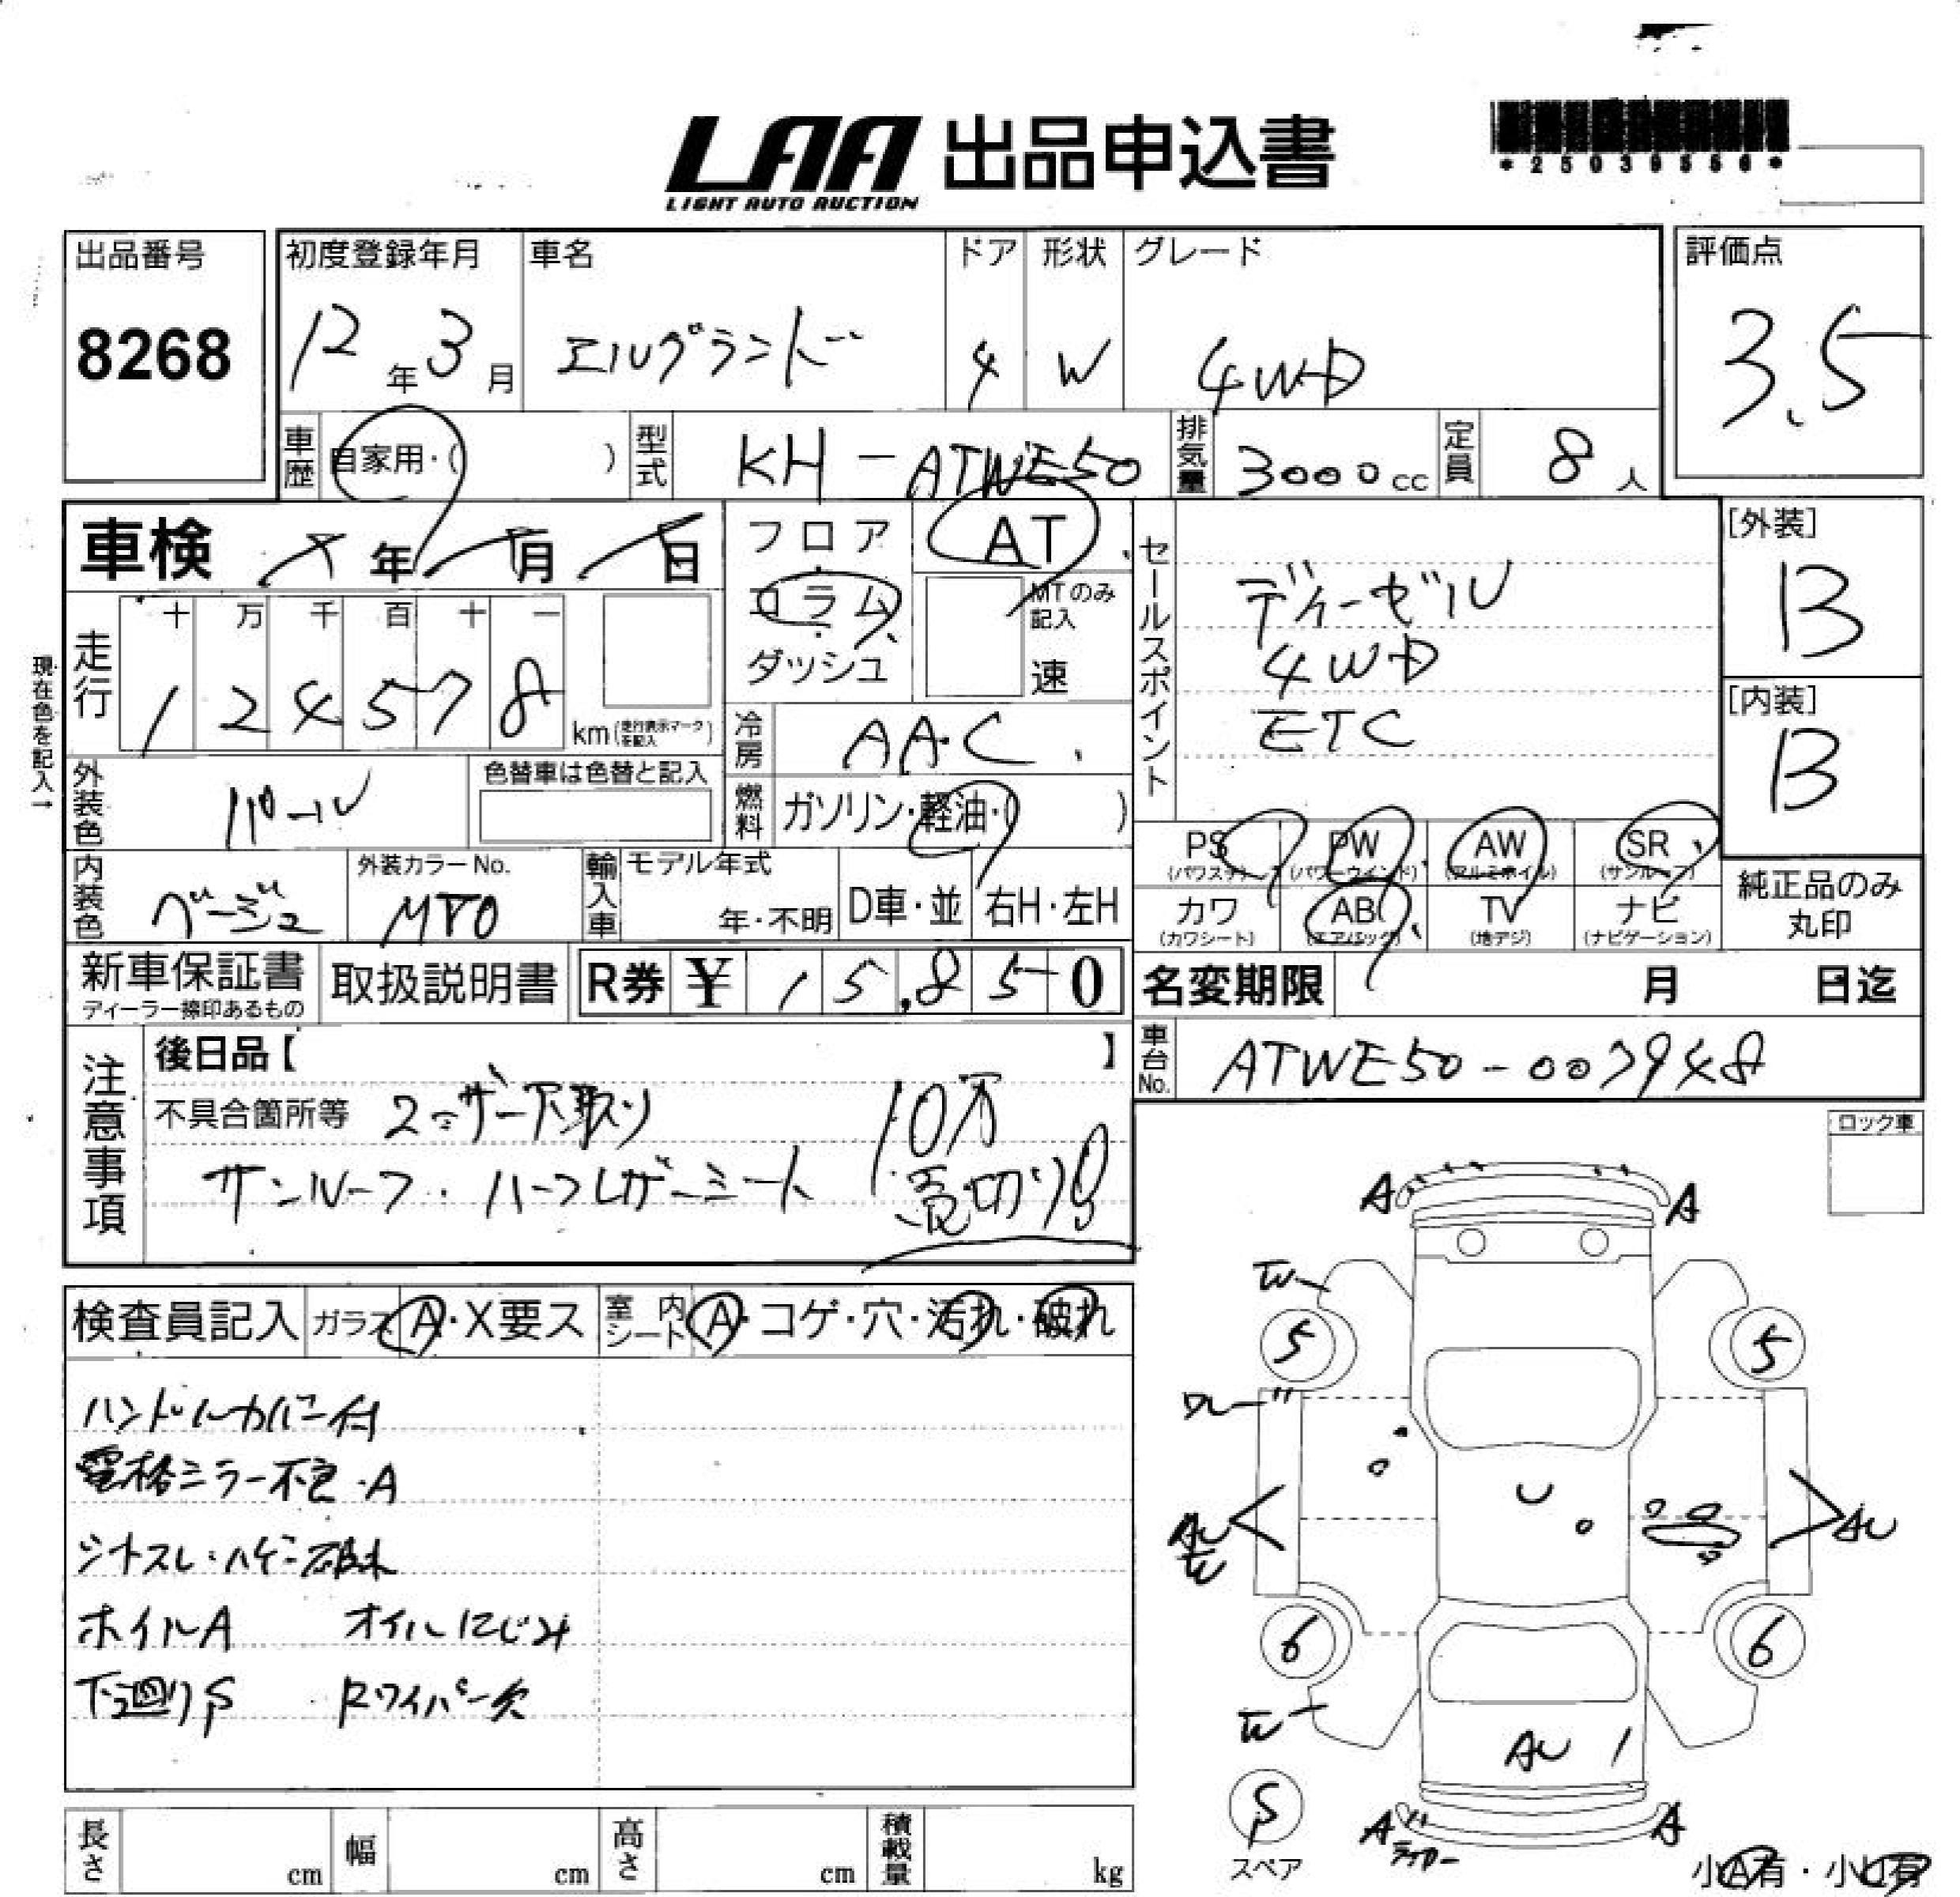 LAA 出品申込書
LIGHT AUTO AUCTION
*25039556*
出品番号
8268
初度登録年月
12年3月
車名
エルグランド
ドア
4
形状
W
グレード
4WD
評価点
3.5
車歴
自家用・( )
型式
KH-ATWE50
排気量
3000cc
定員
8人
車検 年 月 日
フロア
コラム
ダッシュ
AT
MTのみ記入
速
セールスポイント
ディーゼル
4WD
ETC
[外装]
B
[内装]
B
現在色を記入→
走行
十 万 千 百 十 一
1 2 4 5 7 8
km(走行表示マークを記入)
冷房
AAC
外装色
パール
色替車は色替と記入
燃料
ガソリン・軽油・( )
PS (パワステ)
PW (パワーウインド)
AW (アルミホイル)
SR (サンルーフ)
カワ (カワシート)
AB (エアバック)
TV (地デジ)
ナビ (ナビゲーション)
純正品のみ丸印
内装色
ベージュ
外装カラーNo.
輸入車
モデル年式
年・不明
D車・並
右H・左H
新車保証書
ディーラー捺印あるもの
取扱説明書
R券 ¥ 15,850
名変期限 月 日迄
車台No.
注意事項
後日品【 】
不具合箇所等 ユーザー下取り
サンルーフ・ハーフレザーシート
10万
売切り
ロック車
検査員記入
ガラス A・X要ス
室内シート A・コゲ・穴・汚れ・破れ
ハンドルカバー付
電格ミラー不良・A
シートスレ・ハゲ・破れ
ホイルA オイルにじみ
下廻りS Rワイパー欠
A A
W
5 5
AU
W
AU
6 6
W
AU
S
スペア
A A
小A有・小U有
長さ cm
幅 cm
高さ cm
積載量 kg